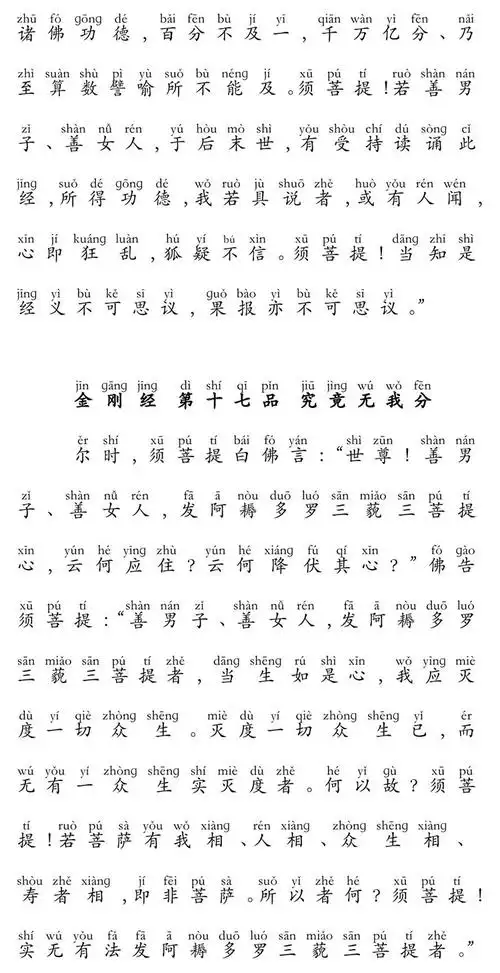 zhū fó gōng dé bǎi fēn bù jí yī qiān wàn yì fēn nǎi
诸佛功德,百分不及一,千万亿分、乃
zhì suàn shù pì yù suǒ bù néng jí xū pú tí ruò shàn nán
至算数譬喻所不能及。须菩提!若善男
zǐ shàn nǚ rén yú hòu mò shì yǒu shòu chí dú sòng cǐ
子、善女人,于后末世,有受持读诵此
jīng suǒ dé gōng dé wǒ ruò jù shuō zhě huò yǒu rén wén
经,所得功德,我若具说者,或有人闻,
xīn jí kuáng luàn hú yí bú xìn xū pú tí dāng zhī shì
心即狂乱,狐疑不信。须菩提!当知是
jīng yì bù kě sī yì guǒ bào yì bù kě sī yì
经义不可思议,果报亦不可思议。”
jīn gāng jīng dì shí qī pǐn jiū jìng wú wǒ fēn
金刚经 第十七品 究竟无我分
ěr shí xū pú tí bái fó yán shì zūn shàn nán
尔时,须菩提白佛言:“世尊!善男
zǐ shàn nǚ rén fā ā nòu duō luó sān miǎo sān pú tí
子、善女人,发阿耨多罗三藐三菩提
xīn yún hé yīng zhù yún hé xiáng fú qí xīn fó gào
心,云何应住?云何降伏其心?”佛告
xū pú tí shàn nán zǐ shàn nǚ rén fā ā nòu duō luó
须菩提:“善男子、善女人,发阿耨多罗
sān miǎo sān pú tí zhě dāng shēng rú shì xīn wǒ yīng miè
三藐三菩提者,当生如是心,我应灭
dù yí qiè zhòng shēng miè dù yí qiè zhòng shēng yǐ ér
度一切众生。灭度一切众生已,而
wú yǒu yí zhòng shēng shí miè dù zhě hé yǐ gù xū pú
无有一众生实灭度者。何以故?须菩
tí ruò pú sà yǒu wǒ xiàng rén xiàng zhòng shēng xiàng
提!若菩萨有我相、人相、众生相、
shòu zhě xiàng jí fēi pú sà suǒ yǐ zhě hé xū pú tí
寿者相,即非菩萨。所以者何?须菩提!
shí wú yǒu fǎ fā ā nòu duō luó sān miǎo sān pú tí zhě
实无有法发阿耨多罗三藐三菩提者。”